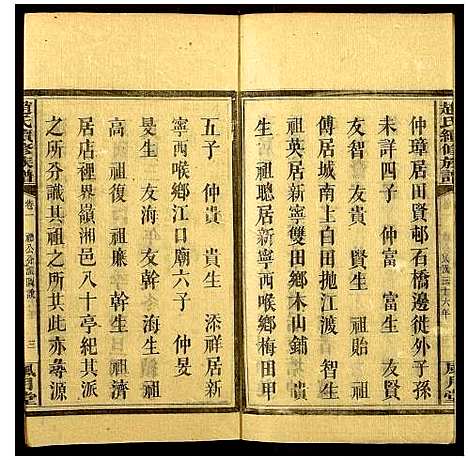 趙氏續修族譜
仲璋居田賢邨石橋邊徙外子孫
未詳四子　仲富　富生　友
友賢　賢生　祖貽
傅居城南上白田拋江渡　智生
祖英居新寧雙田鄉木山鋪　黃
生　祖聰居新寧西喉鄉梅田甲
五子　仲貴　貴生　添祥居新
寧西喉鄉江口廟六子　仲旻
旻生　友海　友幹　海生
祖復　祖廉　幹生　祖濟
居店裡界嶺湘邑八十亭紀其派
之所分識其祖之所其此亦尋源
趙氏續修族譜
卷一
三
風月堂